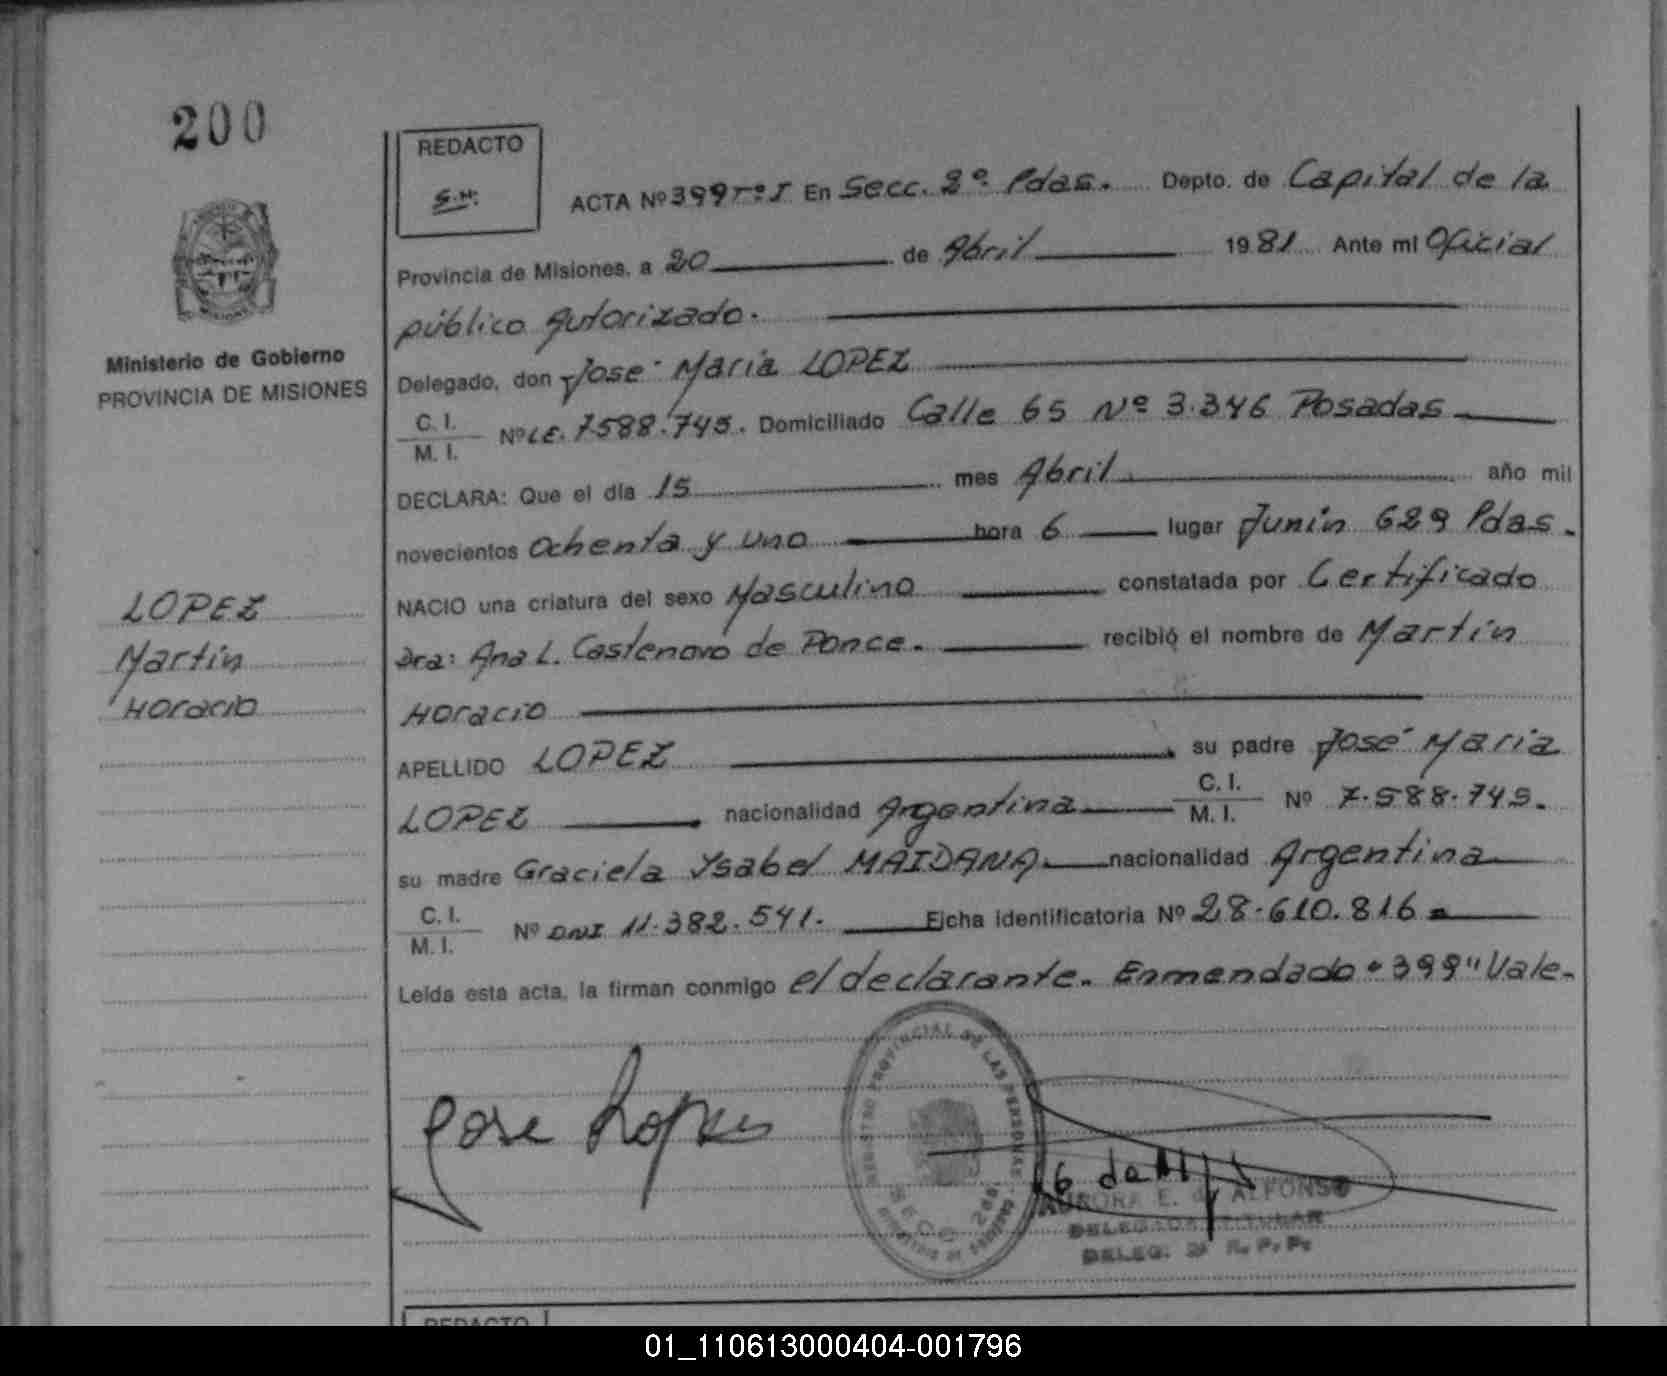 200
REDACTO
S.H.
ACTA Nº 399 Tº I En Secc. 2º Pdas. Depto. de Capital de la
Provincia de Misiones, a 20 de Abril 1981 Ante mi Oficial
público Autorizado.
Ministerio de Gobierno
PROVINCIA DE MISIONES
Delegado, don José María LOPEZ
C. I.
M. I.
Nº LE. 7588.745. Domiciliado Calle 65 Nº 3.346 Posadas
DECLARA: Que el día 15 mes Abril año mil
novecientos Ochenta y uno hora 6 lugar Junín 629 Pdas.
NACIO una criatura del sexo Masculino constatada por Certificado
LOPEZ
Martín
Horacio
Dra: Ana L. Castenovo de Ponce. recibió el nombre de Martín
Horacio
APELLIDO LOPEZ su padre José María
LOPEZ nacionalidad Argentina C. I.
M. I.
Nº 7.588.745.
su madre Graciela Ysabel MAIDANA nacionalidad Argentina
C. I.
M. I.
Nº DNI 11.382.541. Ficha identificatoria Nº 28.610.816
Leída esta acta, la firman conmigo el declarante. Enmendado "399" Vale.
Jose Lopez
REGISTRO PROVINCIAL DE LAS PERSONAS
SECC. 2da.
AURORA E. de ALFONSO
DELEGADA TITULAR
DELEG. 2ª R. P. P.
REDACTO
01_110613000404-001796